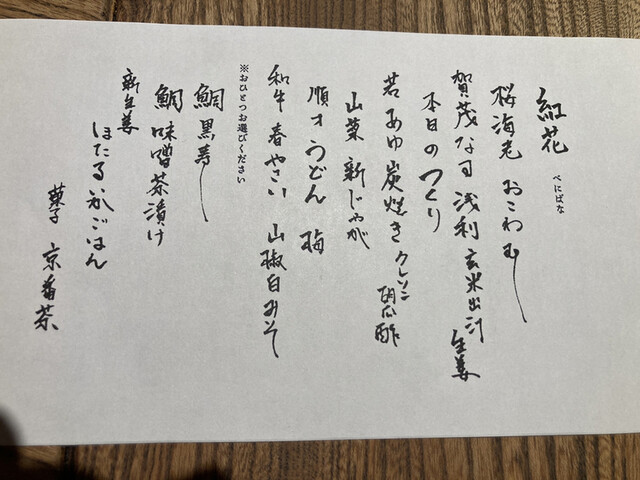 紅花
べにばな
桜海老 おこわむし
賀茂なす 浅利 玄米出汁 生姜
本日のつくり
若あゆ 炭焼き クレソン 胡瓜酢
山菜 新じゃが
順才 うどん 梅
和牛 春やさい 山椒白みそ
※おひとつお選びください
鯛 黒寿し
鯛 味噌茶漬け
新生姜 ほたるいかごはん
菓子 京番茶